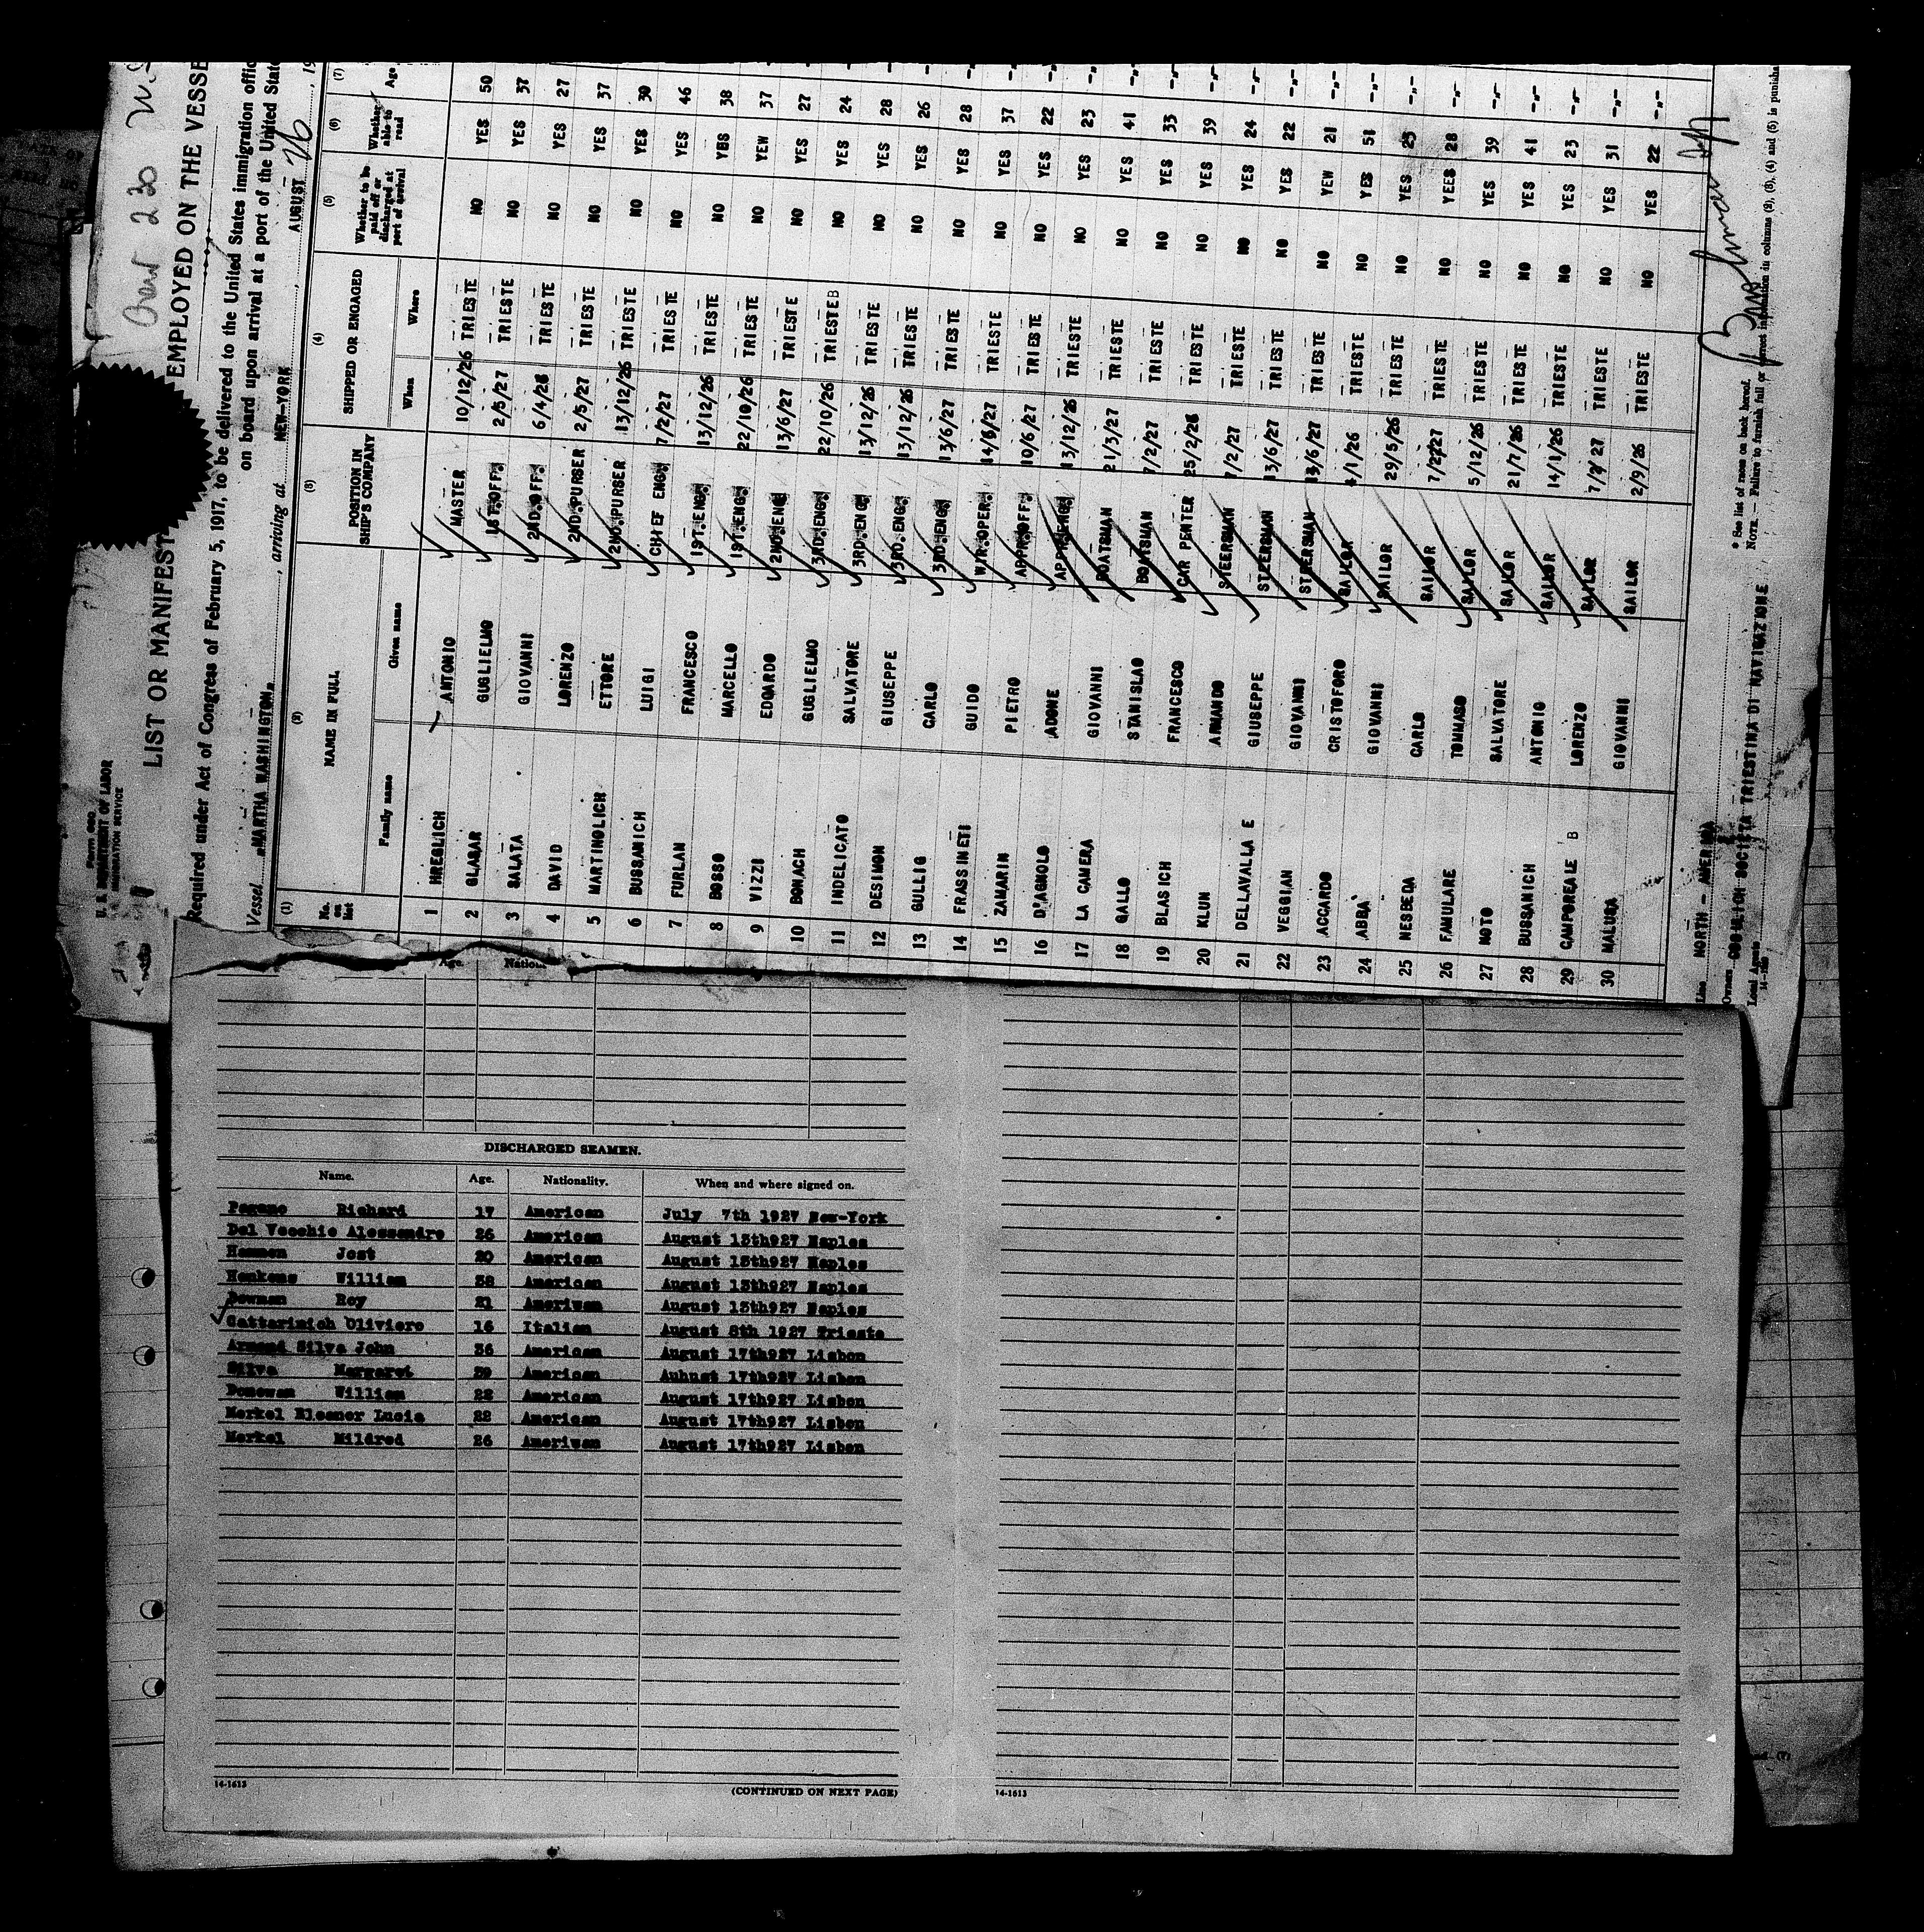 Form 680
U. S. DEPARTMENT OF LABOR
IMMIGRATION SERVICE
Crew 230
LIST OR MANIFEST
EMPLOYED ON THE VESSE
Required under Act of Congress of February 5, 1917, to be delivered to the United States immigration offic
on board upon arrival at a port of the United State
Vessel „MARTHA WASHINGTON„ , arriving at NEW-YORK , AUGUST 26 , 19
(1) (2) (3) (4) (5) (6) (7)
No. on list NAME IN FULL POSITION IN SHIP'S COMPANY SHIPPED OR ENGAGED Whether to be paid off or discharged at port of arrival Whether able to read Age
Family name Given name When Where
1 HREGLICH ANTONIO MASTER 10/12/26 TRIESTE NO YES 50
2 GLAGAR GUGLIELMO 1ST.OFF. 2/5/27 TRIESTE NO YES 37
3 SALATA GIOVANNI 2ND.OFF. 6/4/26 TRIESTE NO YES 27
4 DAVID LORENZO 2ND.PURSER 2/5/27 TRIESTE NO YES 37
5 MARTINOLICH ETTORE 2ND.PURSER 13/12/26 TRIESTE NO YES 30
6 BUSSANICH LUIGI CHIEF ENG. 7/2/27 TRIESTE NO YES 46
7 FURLAN FRANCESCO 1ST.ENG. 13/12/26 TRIESTE NO YBS 38
8 BOSSO MARCELLO 1ST.ENG. 22/10/26 TRIESTE NO YEW 37
9 VIZZI EDGARDO 2ND.ENG 13/6/27 TRIESTE NO YES 27
10 BONACH GUGLIELMO 3RD.ENG. 22/10/26 TRIESTEB NO YES 24
11 INDELICATO SALVATORE 3RD.ENG 13/12/26 TRIESTE NO YES 28
12 DESIMON GIUSEPPE 3RD.ENG. 13/12/26 TRIESTE NO YES 26
13 GULLIG CARLO 3RD.ENG. 13/6/27 TRIESTE NO YES 28
14 FRASSINETI GUIDO W.R.OPER. 14/6/27 TRIESTE NO YES 37
15 ZAMARIN PIETRO APPR.OFF. 10/6/27 TRIESTE NO YES 22
16 D'AGNOLO ADONE APPR.ENG. 13/12/26 TRIESTE NO YES 23
17 LA CAMERA GIOVANNI BOATSMAN 21/3/27 TRIESTE NO YES 41
18 GALLO STANISLAO BOATSMAN 7/2/27 TRIESTE NO YES 33
19 BLASICH FRANCESCO CAR PENTER 25/2/26 TRIESTE NO YES 39
20 KLUN ARMANDO STEERSMAN 7/2/27 TRIESTE NO YES 24
21 DELLAVALLE E GIUSEPPE STEERSMAN 13/6/27 TRIESTE NO YES 22
22 VEGGIAN GIOVANNI STEERSMAN 13/6/27 TRIESTE NO YEW 21
23 ACCARDO CRISTOFORO SAILOR 4/1/26 TRIESTE NO YES 51
24 ABBA' GIOVANNI SAILOR 29/5/26 TRIESTE NO YES 25
25 NESBEDA CARLO SAILOR 7/2/27 TRIESTE NO YEES 28
26 FAMULARE TOMMASO SAILOR 5/12/26 TRIESTE NO YES 39
27 NOTO SALVATORE SAILOR 21/7/26 TRIESTE NO YES 41
28 BUSSANICH ANTONIO SAILOR 14/1/26 TRIESTE NO YES 23
29 CAMPOREALE B LORENZO SAILOR 7/2/27 TRIESTE NO YES 31
30 MALUSA GIOVANNI SAILOR 2/9/26 TRIESTE NO YES 22
Line NORTH - AMERICA
Owners COSULICH SOCIETA TRIESTINA DI NAVIGAZIONE
Local Agents
* See list of races on back hereof.
NOTE.—Failure to furnish full or correct information in columns (2), (3), (4) and (5) is punisha
Age. Nation
DISCHARGED SEAMEN.
Name. Age. Nationality. When and where signed on.
Pagano Richard 17 American July 7th 1927 New-York
Del Vecchio Alessandro 26 American August 13th927 Naples
Hammen Jost 20 American August 13th927 Naples
Henkens William 38 American August 13th927 Naples
Bowman Roy 21 Ameriwan August 13th927 Naples
Cattarinich Oliviero 16 Italian August 8th 1927 Trieste
Armand Silva John 36 American August 17th927 Lisbon
Silva Margaret 39 American Auhust 17th927 Lisbon
Donowan William 22 American August 17th927 Lisbon
Merkel Eleanor Lucie 22 American August 17th927 Lisbon
Merkel Mildred 26 Ameriwan August 17th927 Lisbon
14-1613
(CONTINUED ON NEXT PAGE)
14-1613